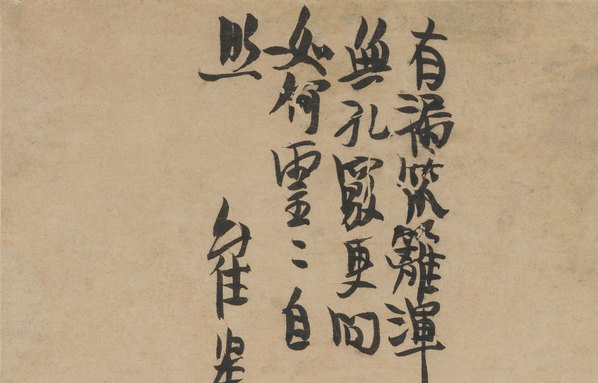 有漏笊籬渾
無孔竅更問
如何靈〻自
照